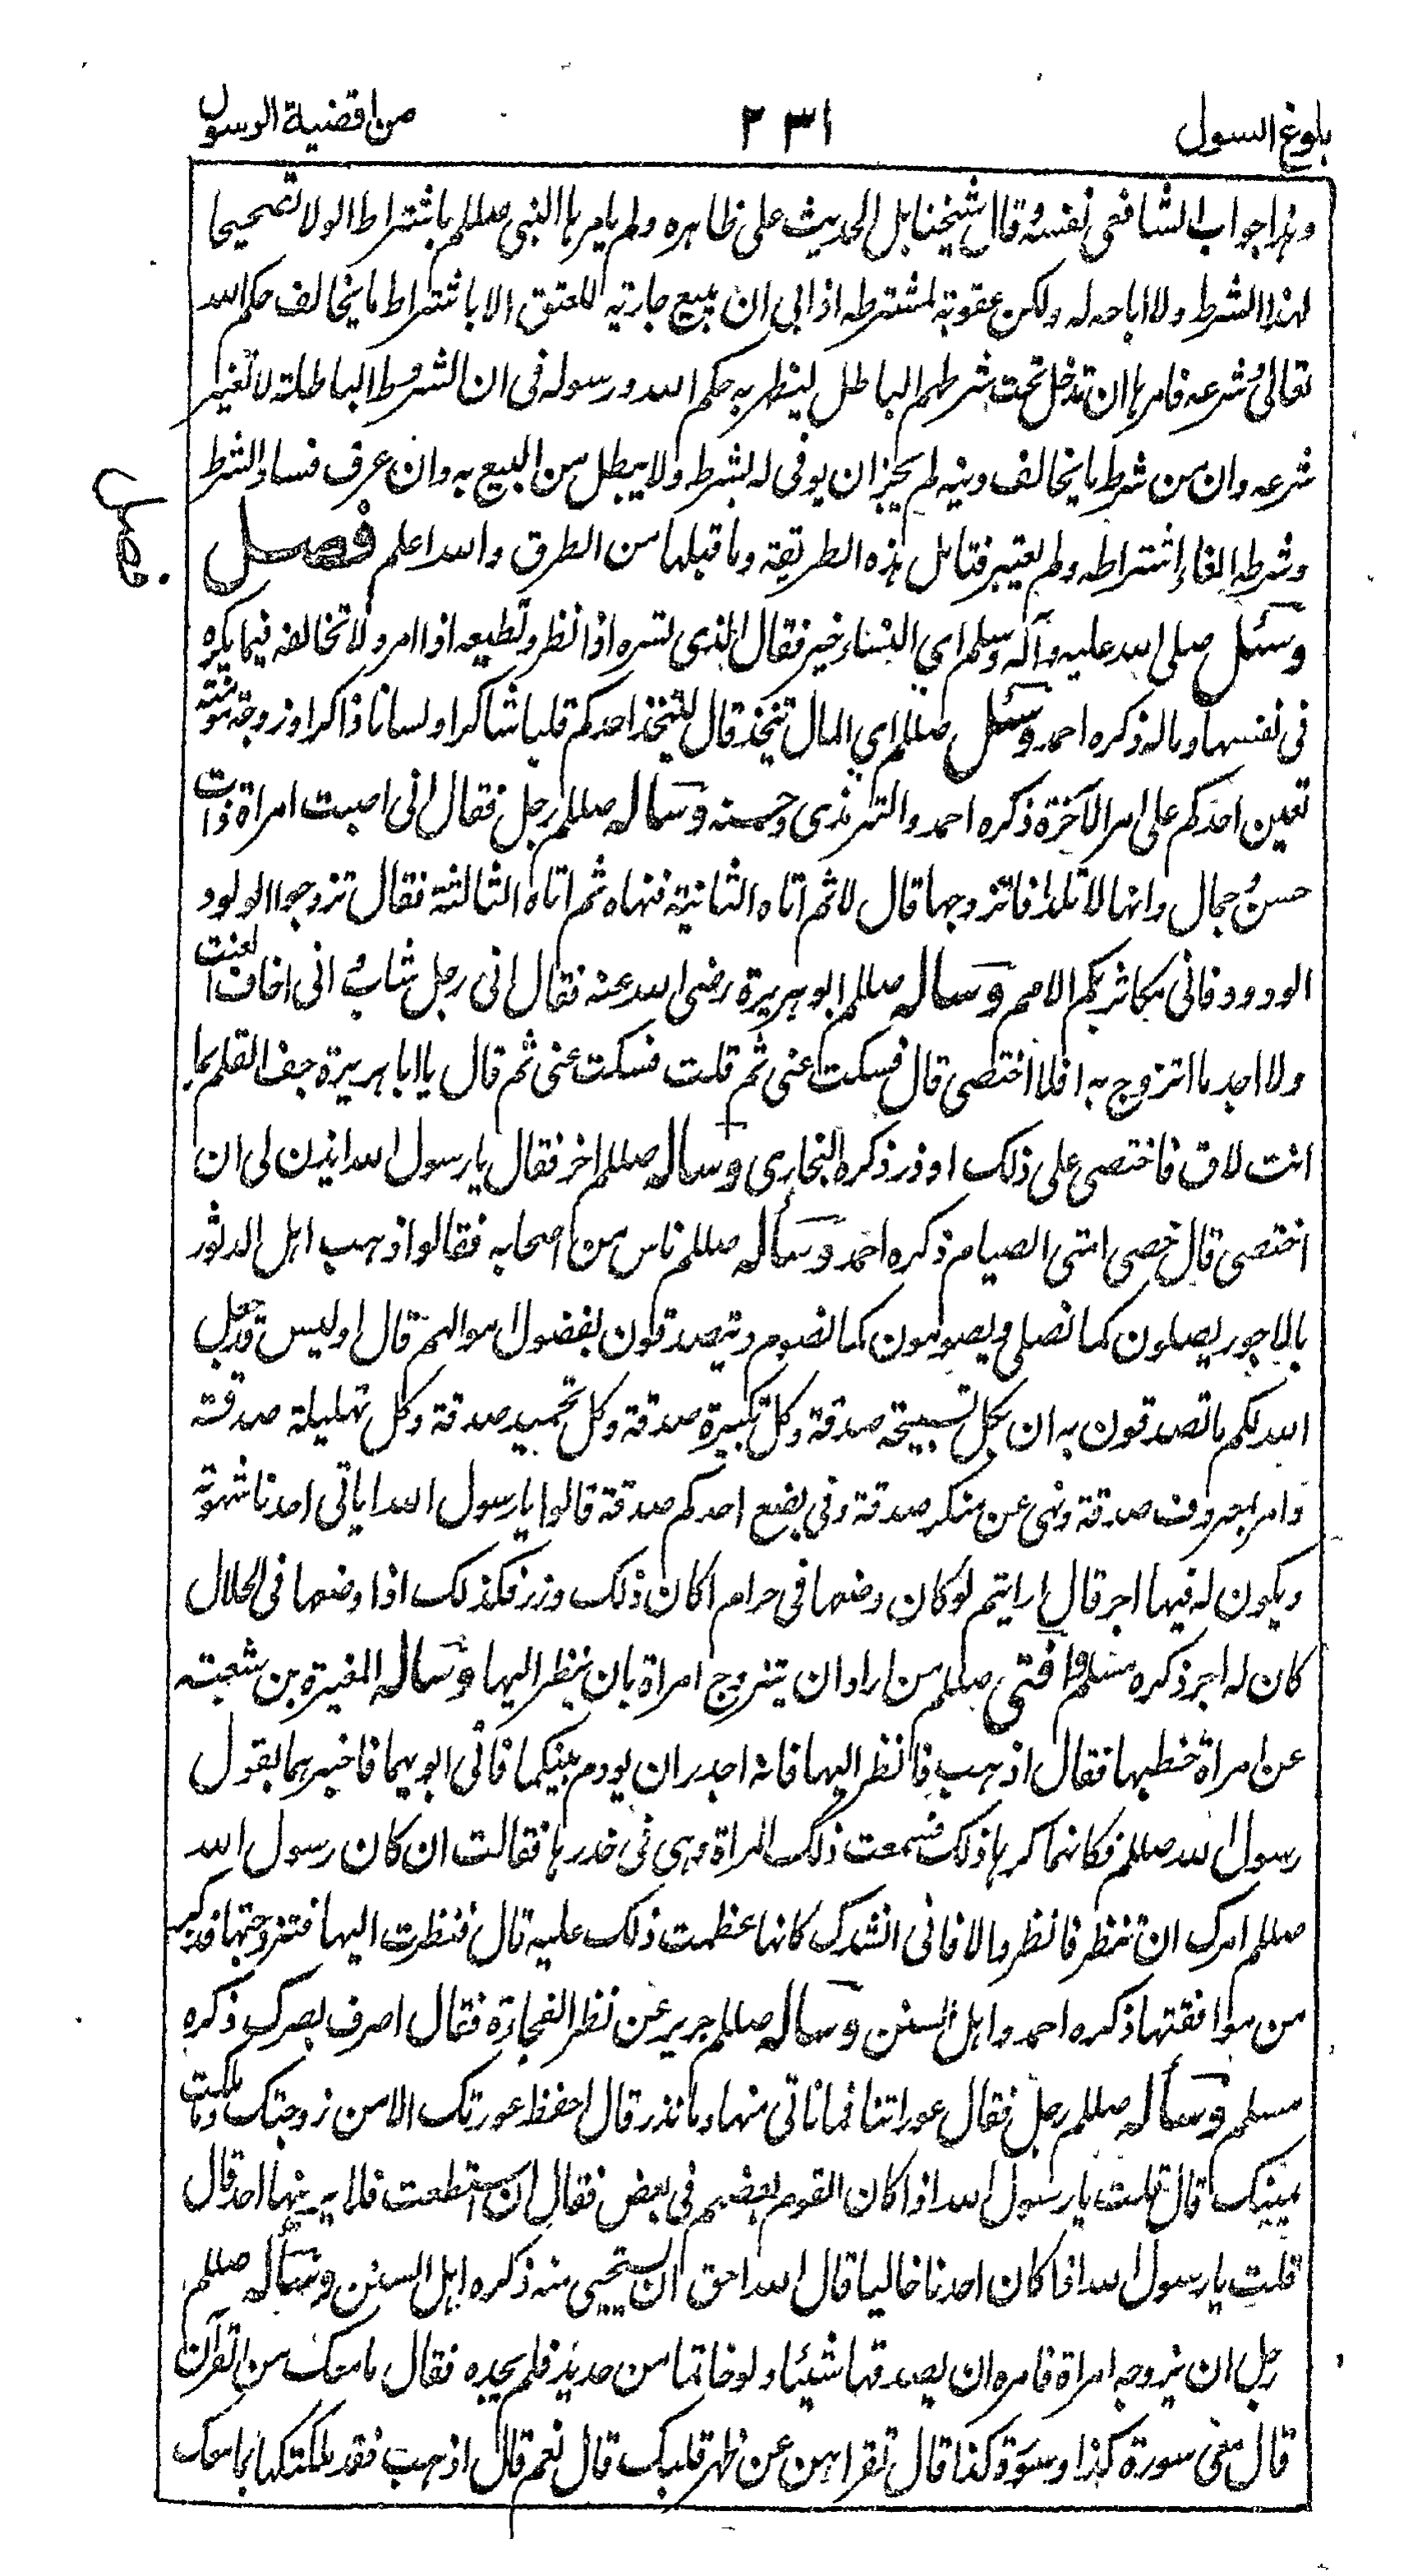 بلوغ السول ٢٣١ من اقضية الرسول
وهذا جواب الشافعي نفسه وقال شيخنا بل الحديث على ظاهره ولم يامرها النبي صللم باشتراط الولا تصحيحا
لهذا الشرط ولا اباحه له ولكن عقوبة لمشترطه اذ ابى ان يبيع جاريته للعتق الا باشتراط ما يخالف حكم الله
تعالى وشرعه فامرها ان تدخل تحت شرطهم الباطل ليظهر به حكم الله ورسوله في ان الشروط الباطلة لا تغير
شرعه وان من شرط ما يخالف دينه لم يجز ان يوفى له بشرطه ولا يبطل من البيع به وان عرف فساد الشرط
وشرطه الغاء اشتراطه ولم يعتبر فتامل هذه الطريقة وما قبلها من الطرق والله اعلم فصل
فصل
وسئل صلى الله عليه وآله وسلم اي النساء خير فقال الذي تسره اذا نظر وتطيعه اذا امر ولا تخالفه فيما يكره
في نفسها وماله ذكره احمد وسئل صللم اي المال نتخذ قال ليتخذ احدكم قلبا شاكرا ولسانا ذاكرا وزوجة مؤمنة
تعين احدكم على امر الآخرة ذكره احمد والترمذي وحسنه وساله صللم رجل فقال اني اصبت امراة ذات
حسن وجمال وانها لا تلد افاتزوجها قال لا ثم اتاه الثانية فنهاه ثم اتاه الثالثة فقال تزوجوا الولود
الودود فاني مكاثر بكم الامم وساله صللم ابو هريرة رضي الله عنه فقال اني رجل شاب واني اخاف العنت
ولا اجد ما اتزوج به افلا اختصي قال فسكت عني ثم قلت فسكت عني ثم قال يا ابا هريرة جف القلم بما
انت لاق فاختصي على ذلك او ذر ذكره البخاري وساله صللم اخر فقال يا رسول الله ايذن لي ان
اختصي قال خصي امتي الصيام ذكره احمد وسأله صللم ناس من اصحابه فقالوا ذهب اهل الدثور
بالاجور يصلون كما نصلي ويصومون كما نصوم ويتصدقون بفضول اموالهم قال اوليس قد جعل
الله لكم ما تصدقون به ان بكل تسبيحة صدقة وكل تكبيرة صدقة وكل تحميد صدقة وكل تهليلة صدقة
وامر بمعروف صدقة ونهي عن منكر صدقة وفي بضع احدكم صدقة قالوا يا رسول الله اياتي احدنا شهوته
ويكون له فيها اجر قال ارايتم لو كان وضعها في حرام اكان ذلك وزر فكذلك اذا وضعها في الحلال
كان له اجر ذكره مسلم وافتى صللم من اراد ان يتزوج امراة بان ينظر اليها وساله المغيرة بن شعبة
عن امراة خطبها فقال اذهب فانظر اليها فانه اجدر ان يودم بينكما فاتى ابويها فاخبرهما بقول
رسول الله صللم فكانهما كرها ذلك فسمعت ذلك المراة وهي في خدرها فقالت ان كان رسول الله
صللم امرك ان تنظر فانظر والا فاني انشدك كانها عظمت ذلك عليه قال فنظرت اليها فتزوجتها فذكر
من موافقتها ذكره احمد واهل السنن وساله صللم جرير عن نظر الفجاءة فقال اصرف بصرك ذكره
مسلم وسأله صللم رجل فقال عوراتنا فما ناتي منها وما نذر قال احفظ عورتك الا من زوجتك وما ملكت
يمينك قال قلت يا رسول الله اذا كان القوم بعضهم في بعض فقال ان استطعت فلا يرينها احد قال
قلت يا رسول الله اذا كان احدنا خاليا قال الله احق ان يستحيى منه ذكره اهل السنن وسأله صللم
رجل ان يزوجه امراة فامره ان يصدقها شيئا ولو خاتما من حديد فلم يجده فقال ما معك من القرآن
قال معي سورة كذا وسورة كذا قال تقراهن عن ظهر قلبك قال نعم قال اذهب فقد ملكتكها بما معك